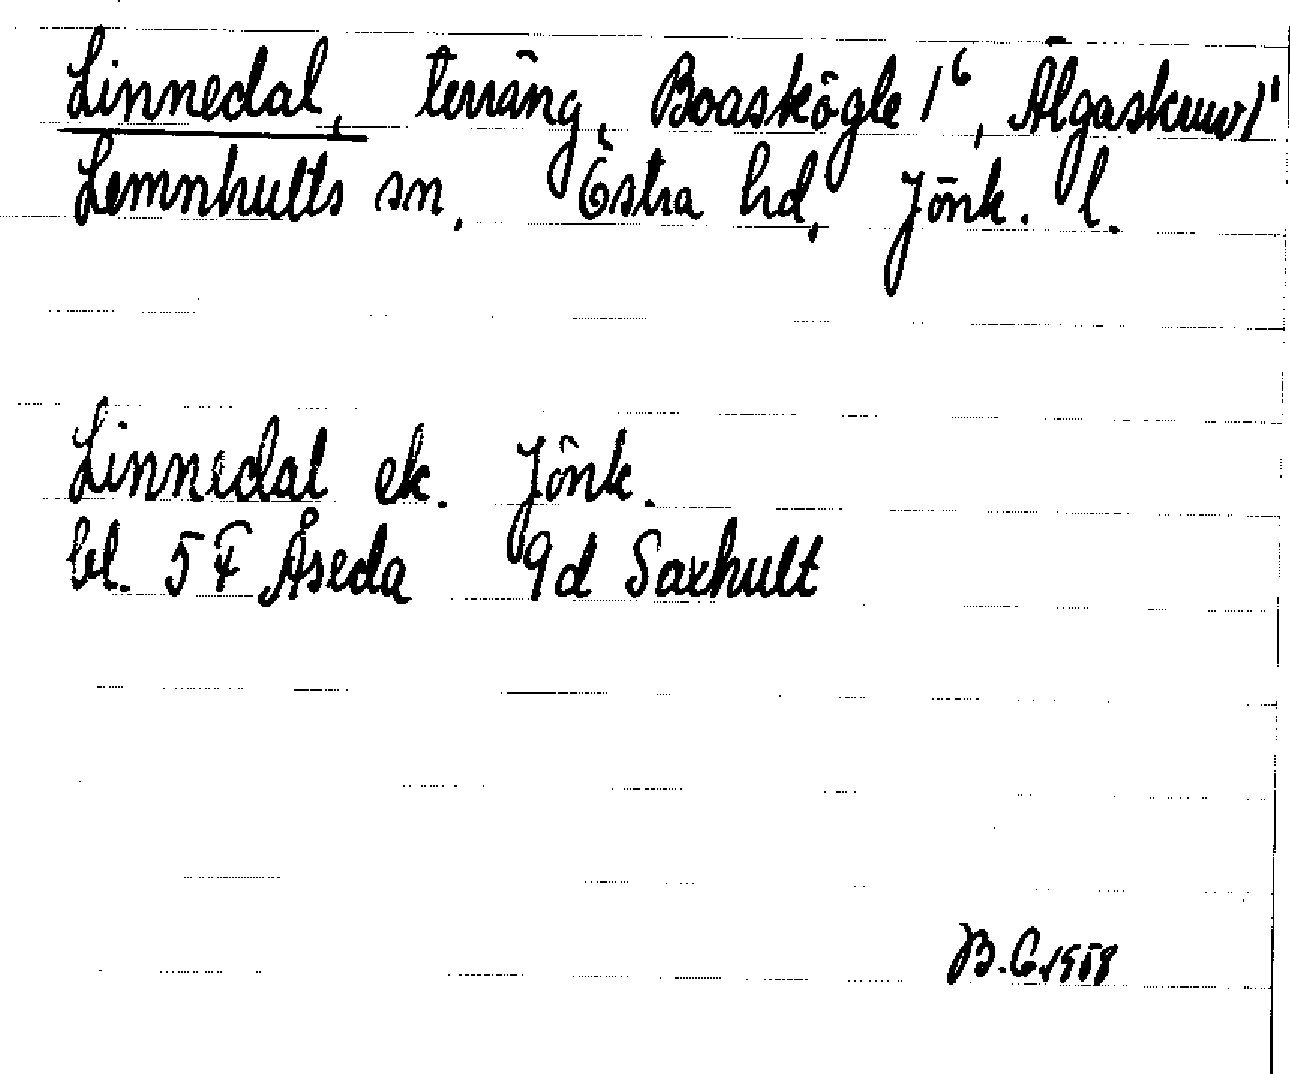 Linnedal, terräng, Boaskögle 1⁶, Älgaskruv 1¹
Lemnhults sn, Östra hd, Jönk. l.
Linnedal ek. Jönk.
bl. 5 F Åseda 9d Saxhult
B.E. 1958